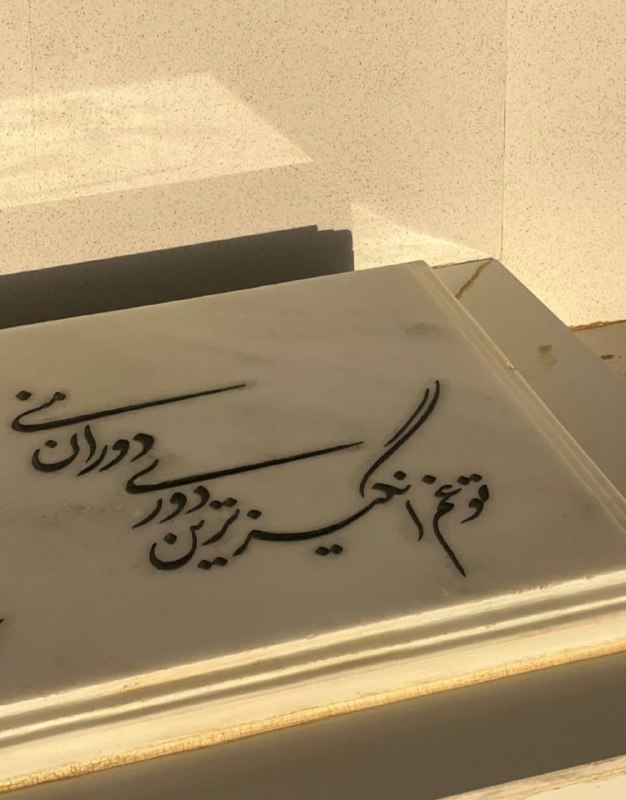 تو غم انگیزترین
دوری دوران منی